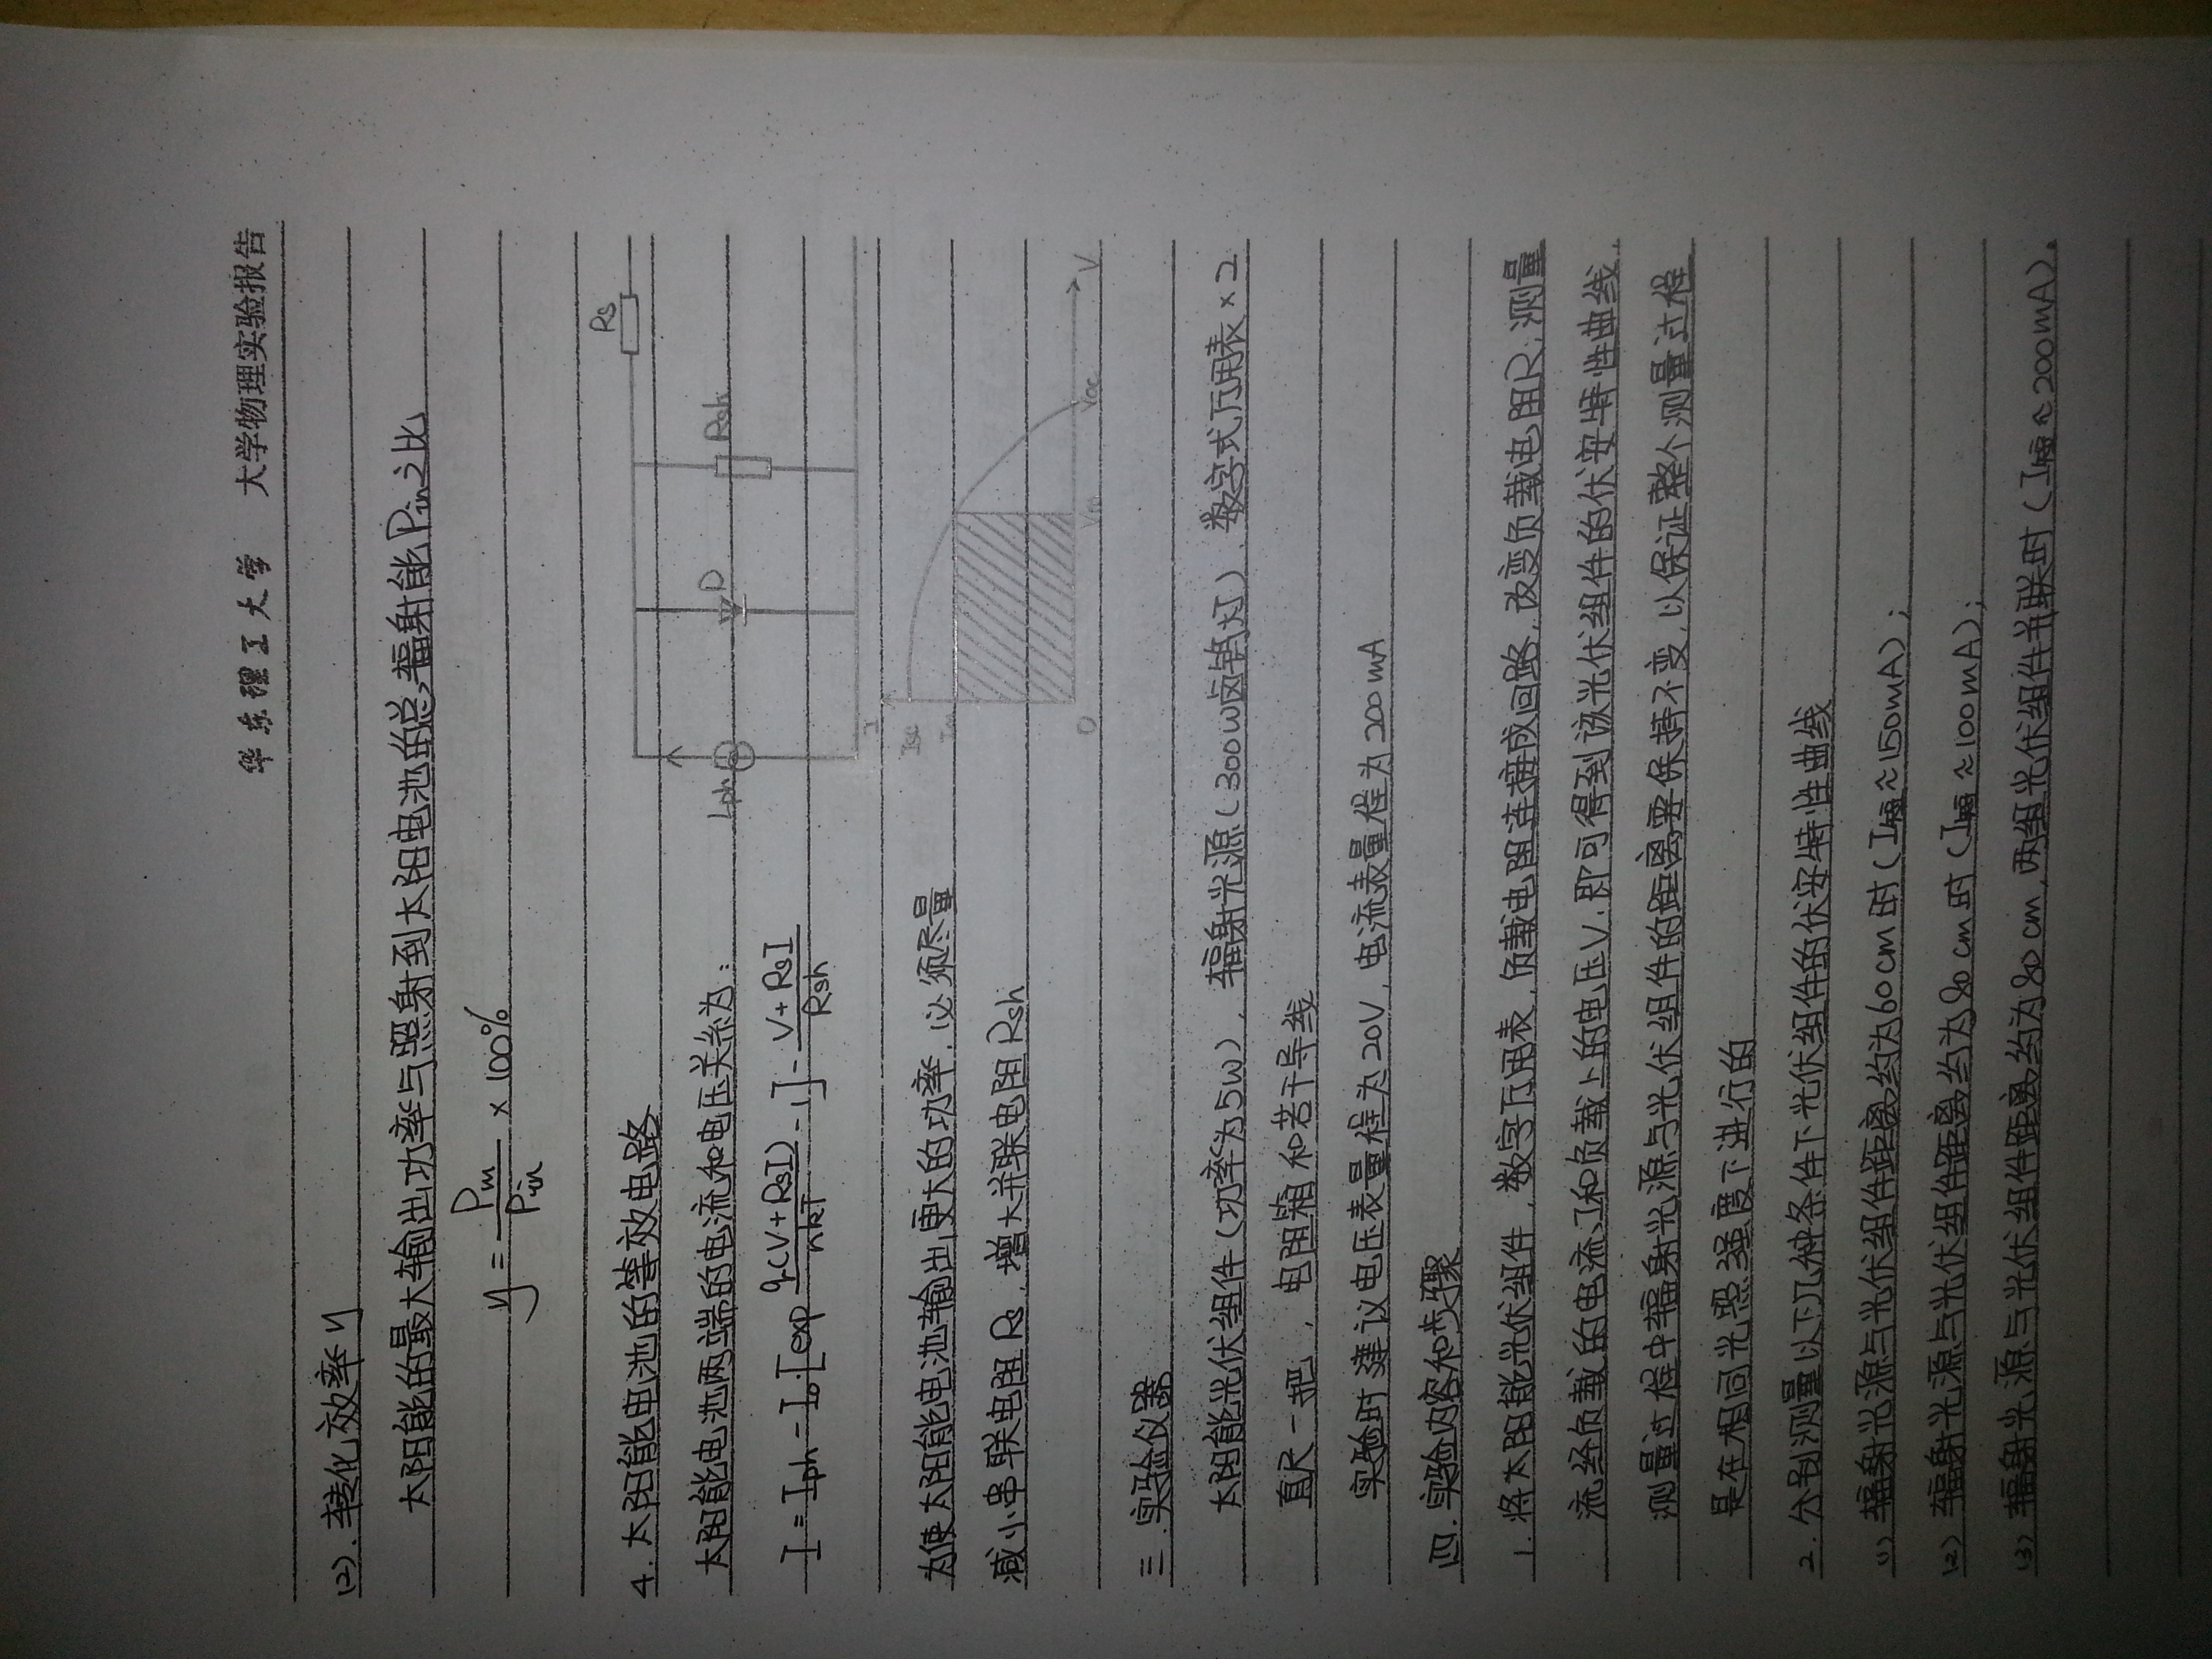 华东理工大学 大学物理实验报告
(2). 转化效率y
太阳能的最大输出功率与照射到太阳电池的总辐射能Pin之比
y = Pm / Pin × 100%
4. 太阳能电池的等效电路
Rs
太阳能电池两端的电流和电压关系为:
Iph D Rsh
I = Iph - I₀·[exp q(V+RsI) / nkT - 1] - V+RsI / Rsh
I
Isc
为使太阳能电池输出更大的功率,必须尽量
Im
减小串联电阻Rs,增大并联电阻Rsh
O Vm Voc V
三.实验仪器
太阳能光伏组件(功率为5W),辐射光源(300W卤钨灯),数字式万用表×2
直尺一把,电阻箱和若干导线
实验时建议电压表量程为20V,电流表量程为200mA
四.实验内容和步骤
1. 将太阳能光伏组件,数字万用表,负载电阻连接成回路,改变负载电阻R,测量
流经负载的电流I和负载上的电压V,即可得到该光伏组件的伏安特性曲线,
测量过程中辐射光源与光伏组件的距离要保持不变,以保证整个测量过程
是在相同光照强度下进行的
2. 分别测量以下几种条件下光伏组件的伏安特性曲线
(1) 辐射光源与光伏组件距离约为60cm时(I短≈150mA);
(2) 辐射光源与光伏组件距离约为80cm时(I短≈100mA);
(3) 辐射光源与光伏组件距离约为80cm,两组光伏组件并联时(I短≈200mA)。